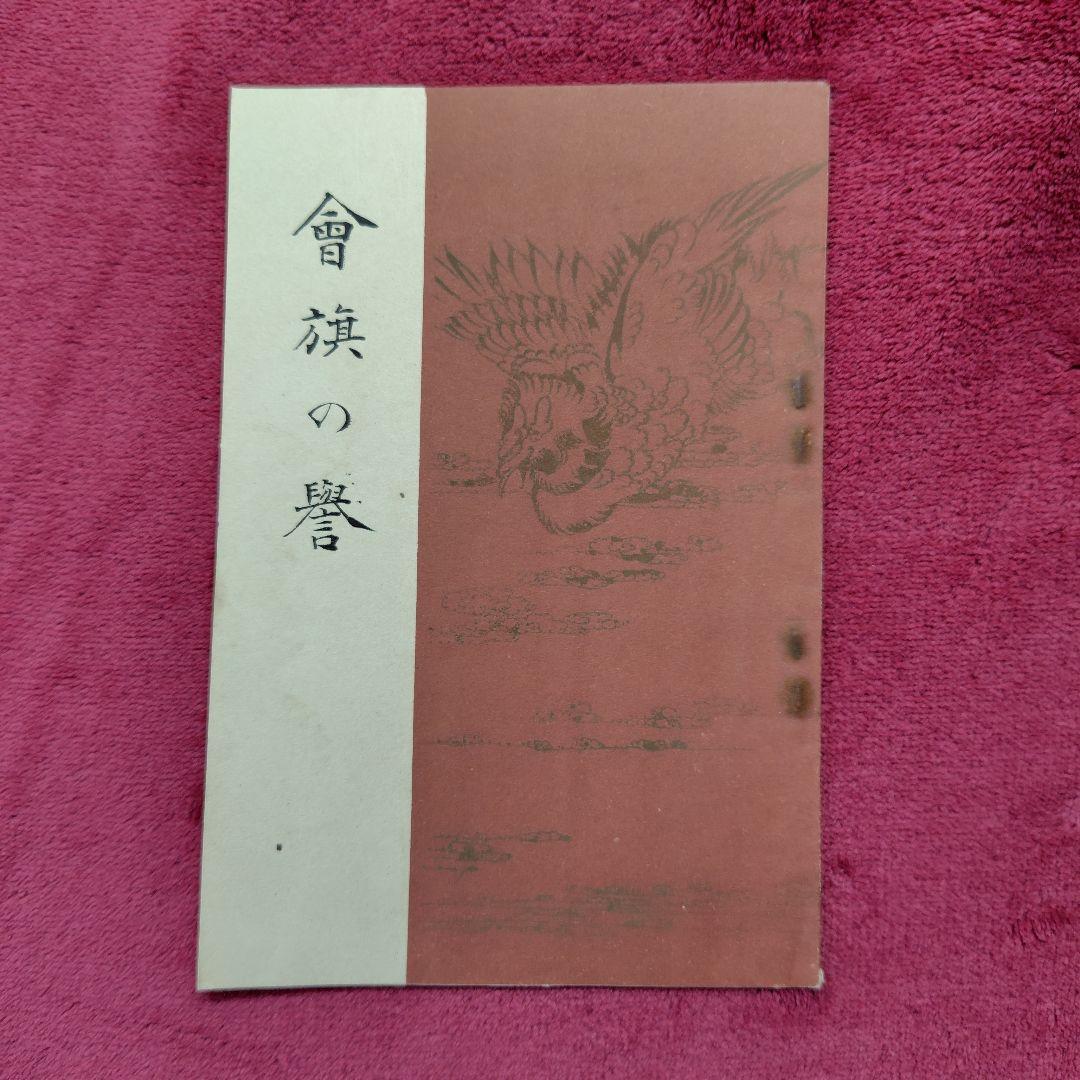 會旗の譽